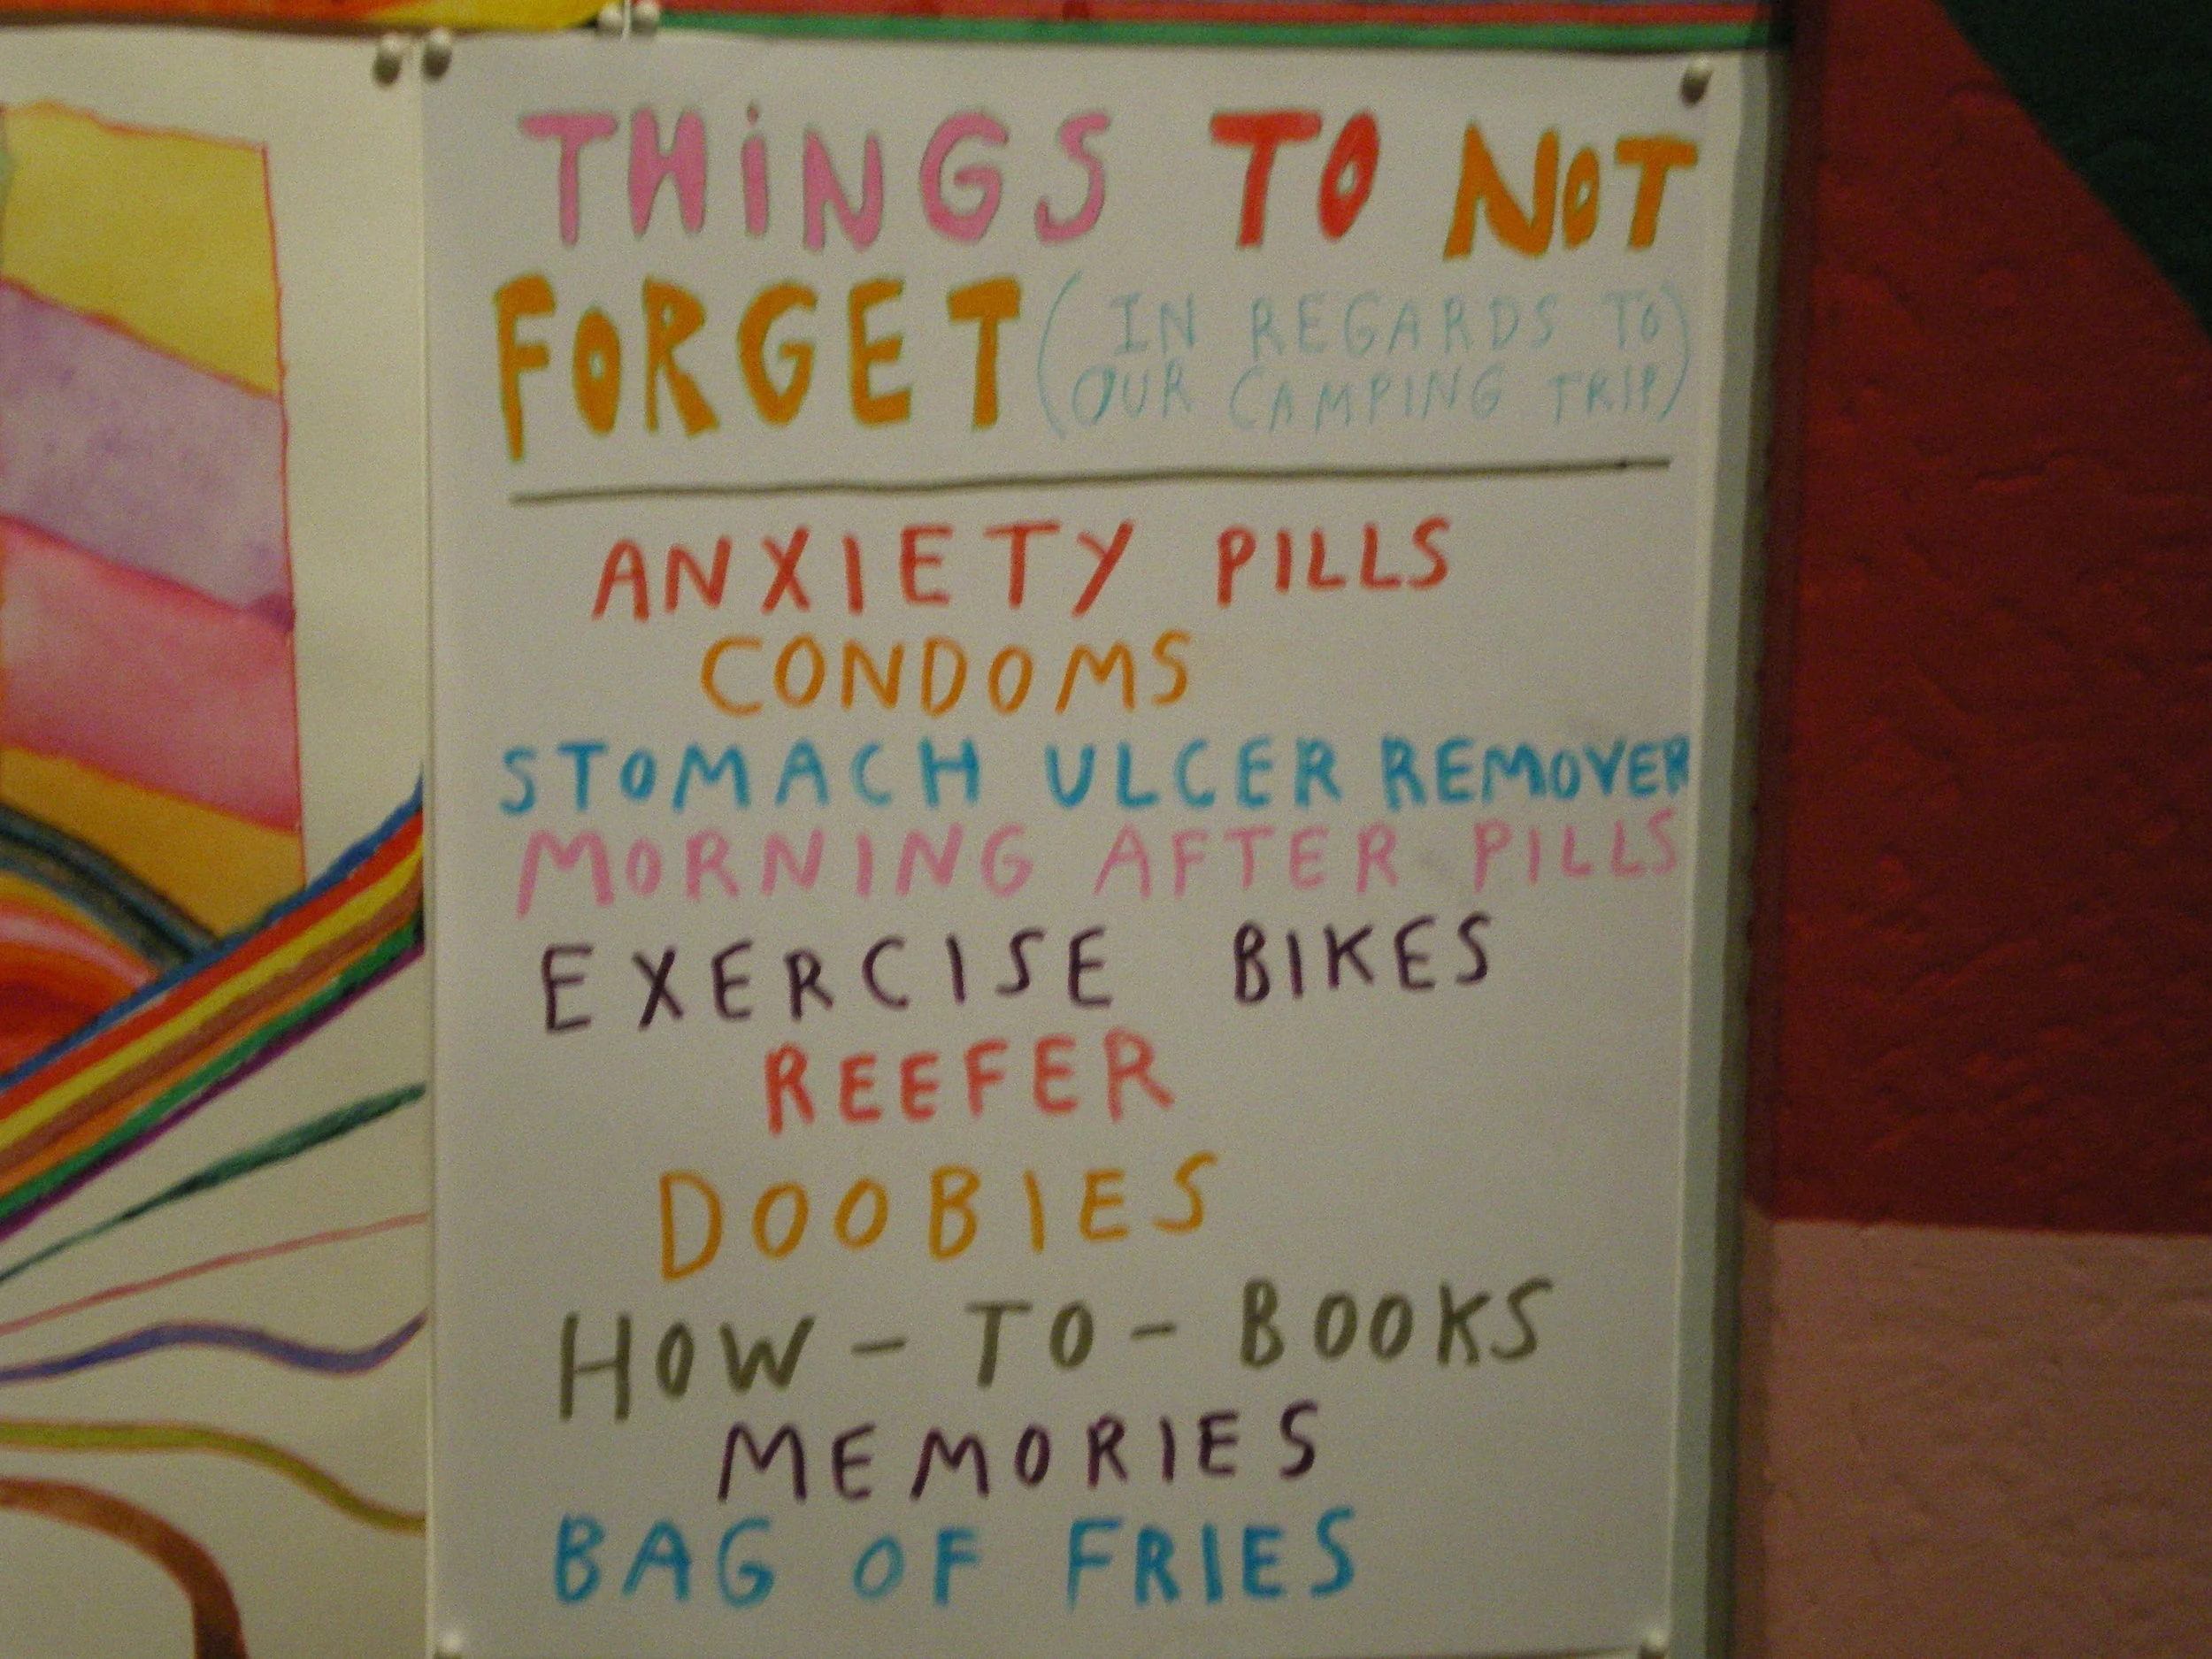 THiNGS TO NOT
FORGET (IN REGARDS TO
OUR CAMPING TRIP)
ANXIETY PILLS
CONDOMS
STOMACH ULCER REMOVER
MORNING AFTER PILLS
EXERCISE BIKES
REEFER
DOOBIES
HOW-TO-BOOKS
MEMORIES
BAG OF FRIES